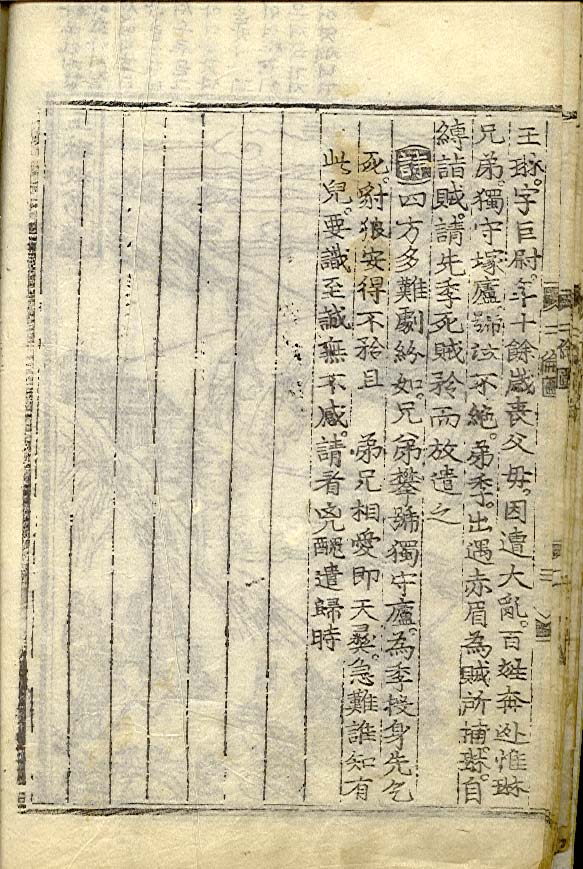 王琳。字巨尉。年十餘歲喪父毋。因遭大亂。百姓奔迯惟琳
兄弟。獨守塚廬號泣不絶。弟季。出遇赤眉為賊所捕。琳。自
縛詣賊。請先季死賊矜而放遣之
詩 四方多難劇紛如。兄弟攀號獨守廬。為季投身先乞
死。豺狼安得不矜且 弟兄相愛即天彛。急難誰知有
此兒。要識至誠無不感。請看兇醜遣歸時